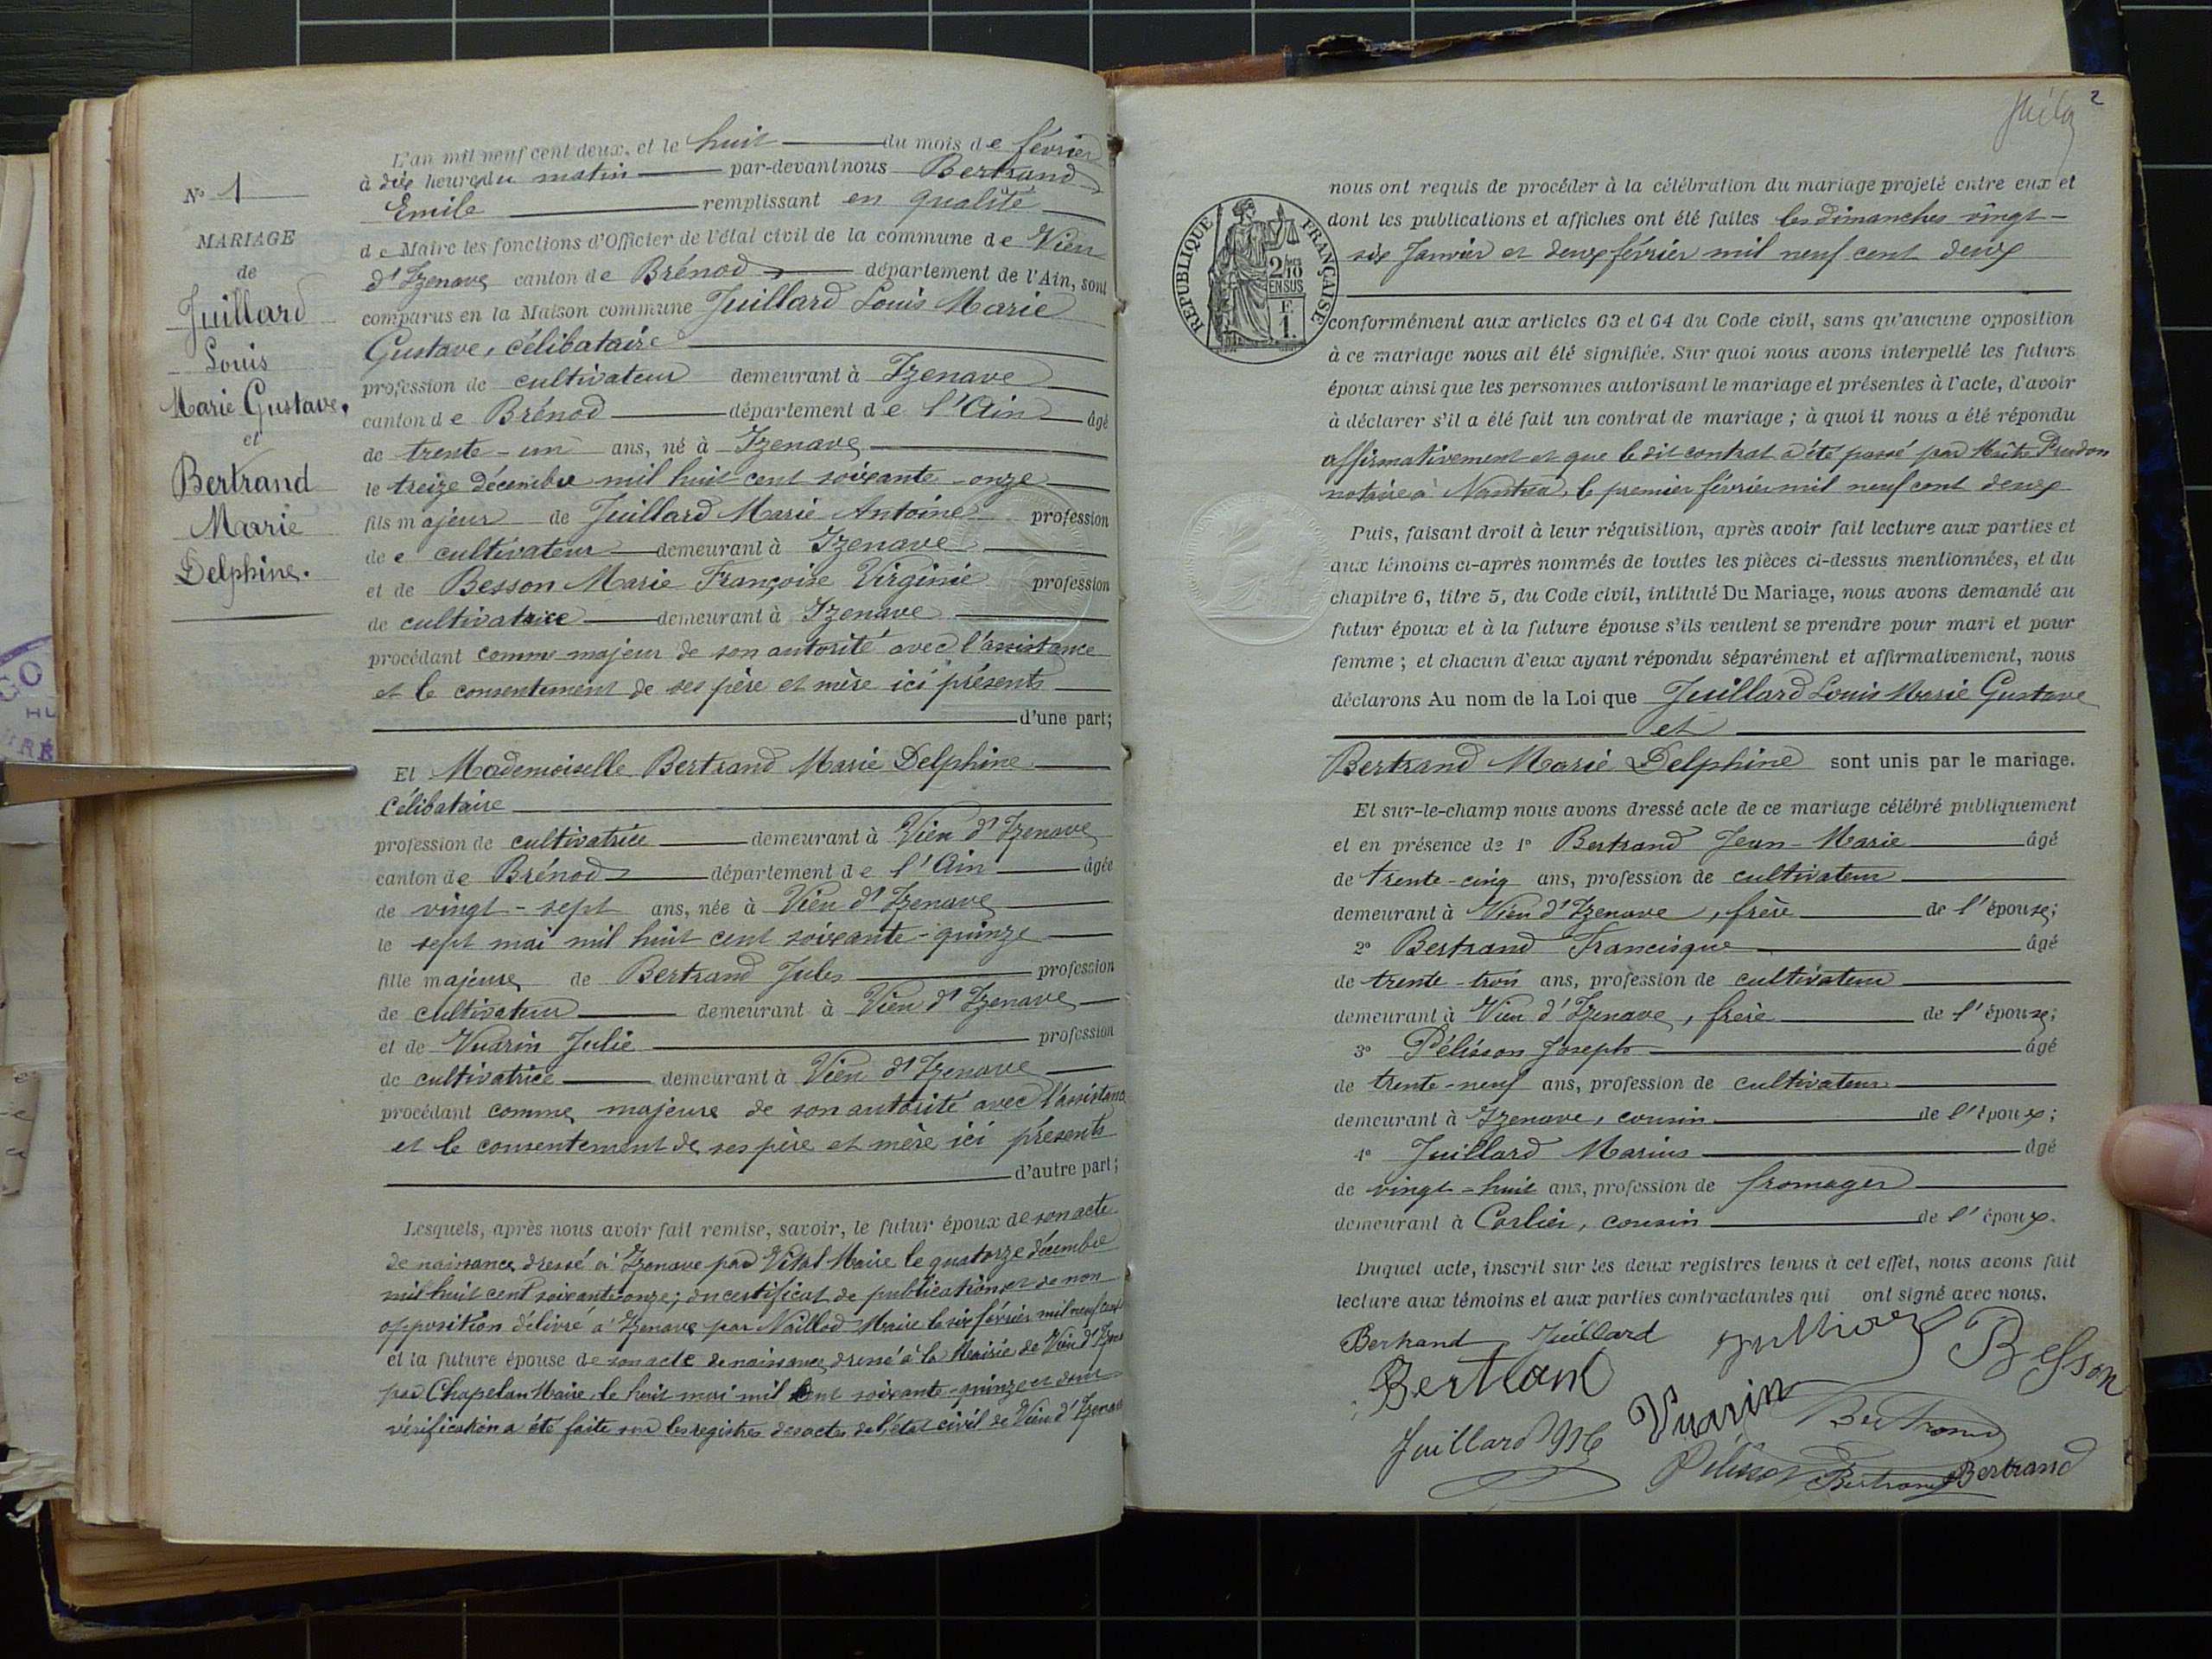 N° 1
MARIAGE
de
Juillard
Louis
Marie Gustave,
et
Bertrand
Marie
Delphine.
L'an mil neuf cent deux, et le huit du mois de février
à dix heures du matin par-devant nous Bertrand
Emile remplissant en qualité
de Maire les fonctions d'Officier de l'état civil de la commune de Vieu
d'Izenave canton de Brénod département de l'Ain, sont
comparus en la Maison commune Juillard Louis Marie
Gustave, célibataire
profession de cultivateur demeurant à Izenave
canton de Brénod département de l'Ain âgé
de trente-un ans, né à Izenave
le treize décembre mil huit cent soixante-onze
fils majeur de Juillard Marie Antoine profession
de cultivateur demeurant à Izenave
et de Besson Marie Françoise Virginie profession
de cultivatrice demeurant à Izenave
procédant comme majeur de son autorité avec l'assistance
et le consentement de ses père et mère ici présents
d'une part;
Et Mademoiselle Bertrand Marie Delphine
Célibataire
profession de cultivatrice demeurant à Vieu d'Izenave
canton de Brénod département de l'Ain âgée
de vingt-sept ans, née à Vieu d'Izenave
le sept mai mil huit cent soixante-quinze
fille majeure de Bertrand Jules profession
de cultivateur demeurant à Vieu d'Izenave
et de Vuarin Julie profession
de cultivatrice demeurant à Vieu d'Izenave
procédant comme majeure de son autorité avec l'assistance
et le consentement de ses père et mère ici présents
d'autre part;
Lesquels, après nous avoir fait remise, savoir, le futur époux de son acte
de naissance dressé à Izenave par Vital Maire le quatorze décembre
mil huit cent soixante onze; du certificat de publication et de non
opposition délivré à Izenave par Naillod Maire le six février mil neuf cent
et la future épouse de son acte de naissance dressé à la Mairie de Vieu d'Izenave
par Chapelan Maire, le huit mai mil cent soixante-quinze et dont
vérification a été faite sur les registres des actes de l'état civil de Vieu d'Izenave
2
nous ont requis de procéder à la célébration du mariage projeté entre eux et
dont les publications et affiches ont été faites les dimanches vingt-
six Janvier et deux février mil neuf cent deux
RÉPUBLIQUE FRANÇAISE
2/10
EN SUS
F.
1.
conformément aux articles 63 et 64 du Code civil, sans qu'aucune opposition
à ce mariage nous ait été signifiée. Sur quoi nous avons interpellé les futurs
époux ainsi que les personnes autorisant le mariage et présentes à l'acte, d'avoir
à déclarer s'il a été fait un contrat de mariage; à quoi il nous a été répondu
affirmativement et que le dit contrat a été passé par Maître Prudon
notaire à Nantua, le premier février mil neuf cent deux
Puis, faisant droit à leur réquisition, après avoir fait lecture aux parties et
aux témoins ci-après nommés de toutes les pièces ci-dessus mentionnées, et du
chapitre 6, titre 5, du Code civil, intitulé Du Mariage, nous avons demandé au
futur époux et à la future épouse s'ils veulent se prendre pour mari et pour
femme; et chacun d'eux ayant répondu séparément et affirmativement, nous
déclarons Au nom de la Loi que Juillard Louis Marie Gustave
et
Bertrand Marie Delphine sont unis par le mariage.
Et sur-le-champ nous avons dressé acte de ce mariage célébré publiquement
et en présence de 1° Bertrand Jean-Marie âgé
de trente-cinq ans, profession de cultivateur
demeurant à Vieu d'Izenave, frère de l'épouse;
2° Bertrand Francisque âgé
de trente-trois ans, profession de cultivateur
demeurant à Vieu d'Izenave, frère de l'épouse;
3° Pélisson Joseph âgé
de trente-neuf ans, profession de cultivateur
demeurant à Izenave, cousin de l'époux;
4° Juillard Marius âgé
de vingt-huit ans, profession de fromager
demeurant à Corlier, cousin de l'époux.
Duquel acte, inscrit sur les deux registres tenus à cet effet, nous avons fait
lecture aux témoins et aux parties contractantes qui ont signé avec nous.
Bertrand Juillard Besson
Bertrand Vuarin Bertrand
Juillard Pélisson Bertrand Bertrand